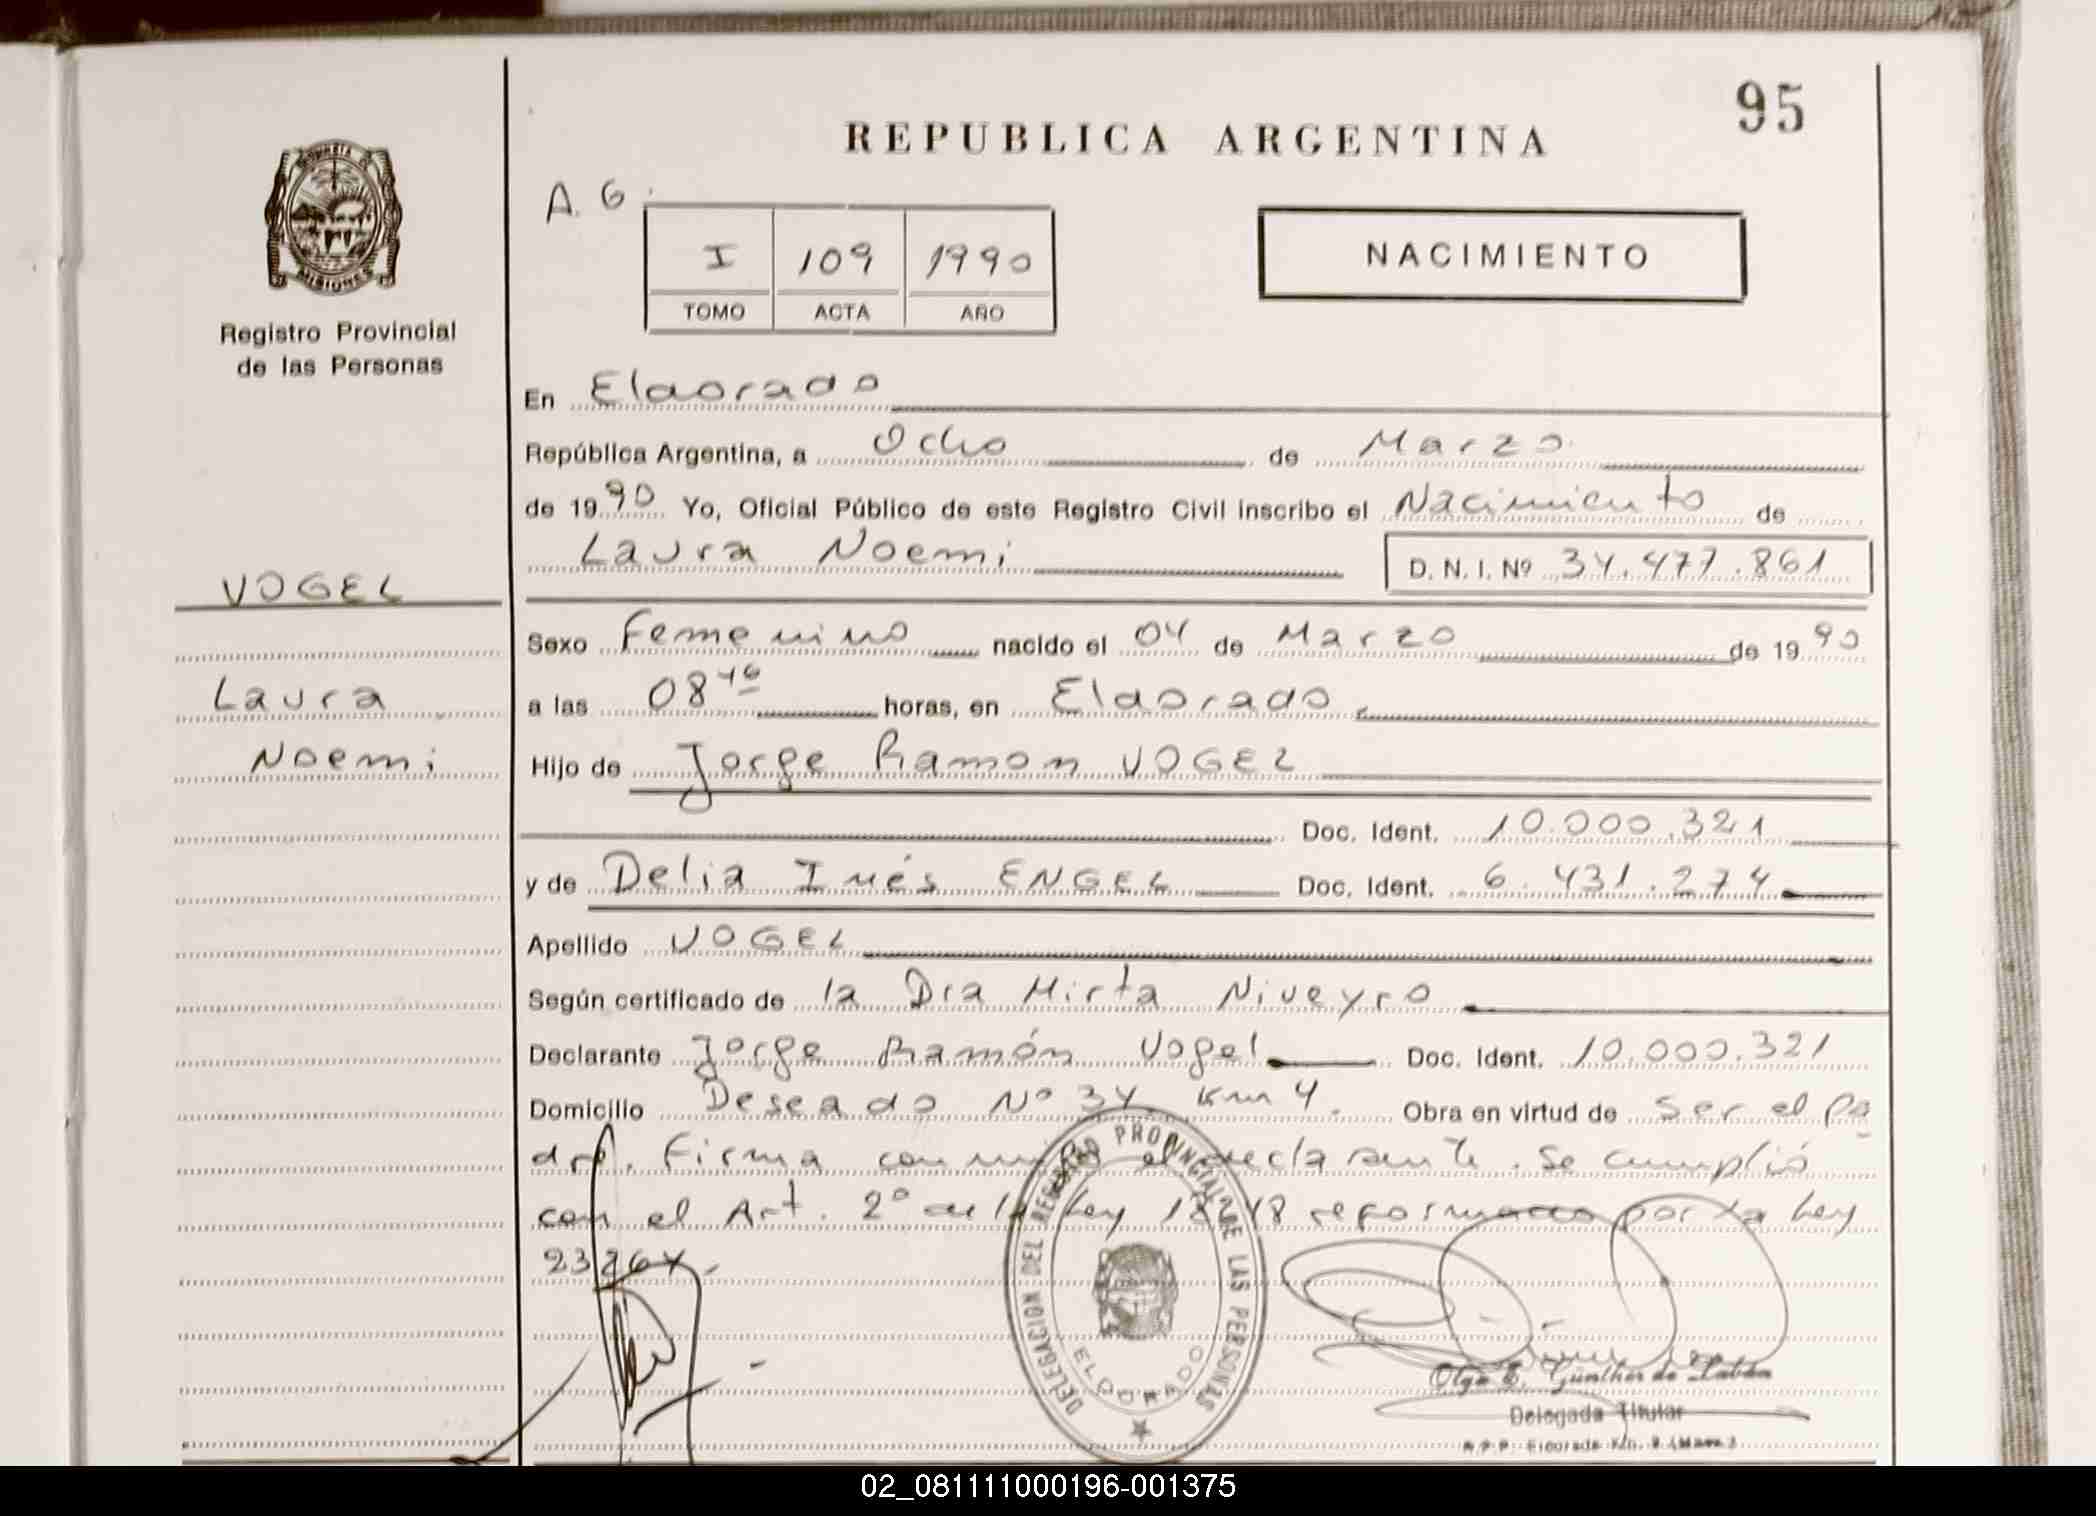 95
REPUBLICA ARGENTINA
PROVINCIA DE
MISIONES
Registro Provincial
de las Personas
A. G.
I 109 1990
TOMO ACTA AÑO
NACIMIENTO
En Eldorado
República Argentina, a Ocho de Marzo
de 1990 Yo, Oficial Público de este Registro Civil inscribo el Nacimiento de
Laura Noemi D. N. I. Nº 34.477.861
VOGEL
Laura
Noemi
Sexo Femenino nacido el 04 de Marzo de 1990
a las 08 horas, en Eldorado.
Hijo de Jorge Ramon VOGEL
Doc. Ident. 10.000.321
y de Delia Inés ENGEL Doc. Ident. 6.431.274
Apellido VOGEL
Según certificado de la Dra Mirta Niveyro
Declarante Jorge Ramón Vogel Doc. Ident. 10.000.321
Domicilio Deseado Nº 34 Km 4. Obra en virtud de ser el pa
dre. Firma conmigo el declarante. Se cumplió
con el Art. 2º de la Ley 18248 reformado por la Ley
23264.
DELEGACION DEL REGISTRO PROVINCIAL DE LAS PERSONAS
ELDORADO
Olga E. Günther de
Delegada Titular
R.P.P. Eldorado Km. 9 (Mnes.)
02_081111000196-001375